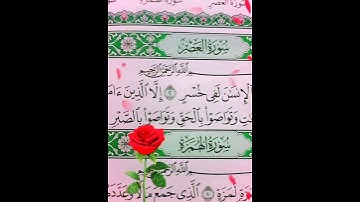 سُورَةُ العَصۡرِ
بِسۡمِ ٱللَّهِ ٱلرَّحۡمَٰنِ ٱلرَّحِيمِ
ٱلۡإِنسَٰنَ لَفِي خُسۡرٍ ٢ إِلَّا ٱلَّذِينَ ءَامَ
تِ وَتَوَاصَوۡاْ بِٱلۡحَقِّ وَتَوَاصَوۡاْ بِٱلصَّبۡرِ
سُورَةُ الهُمَزَةِ
بِسۡمِ ٱللَّهِ ٱلرَّحۡمَٰنِ ٱلرَّحِيمِ
لُّمَزَةٍ ١ ٱلَّذِي جَمَعَ مَالٗا وَعَدَّدَهُ